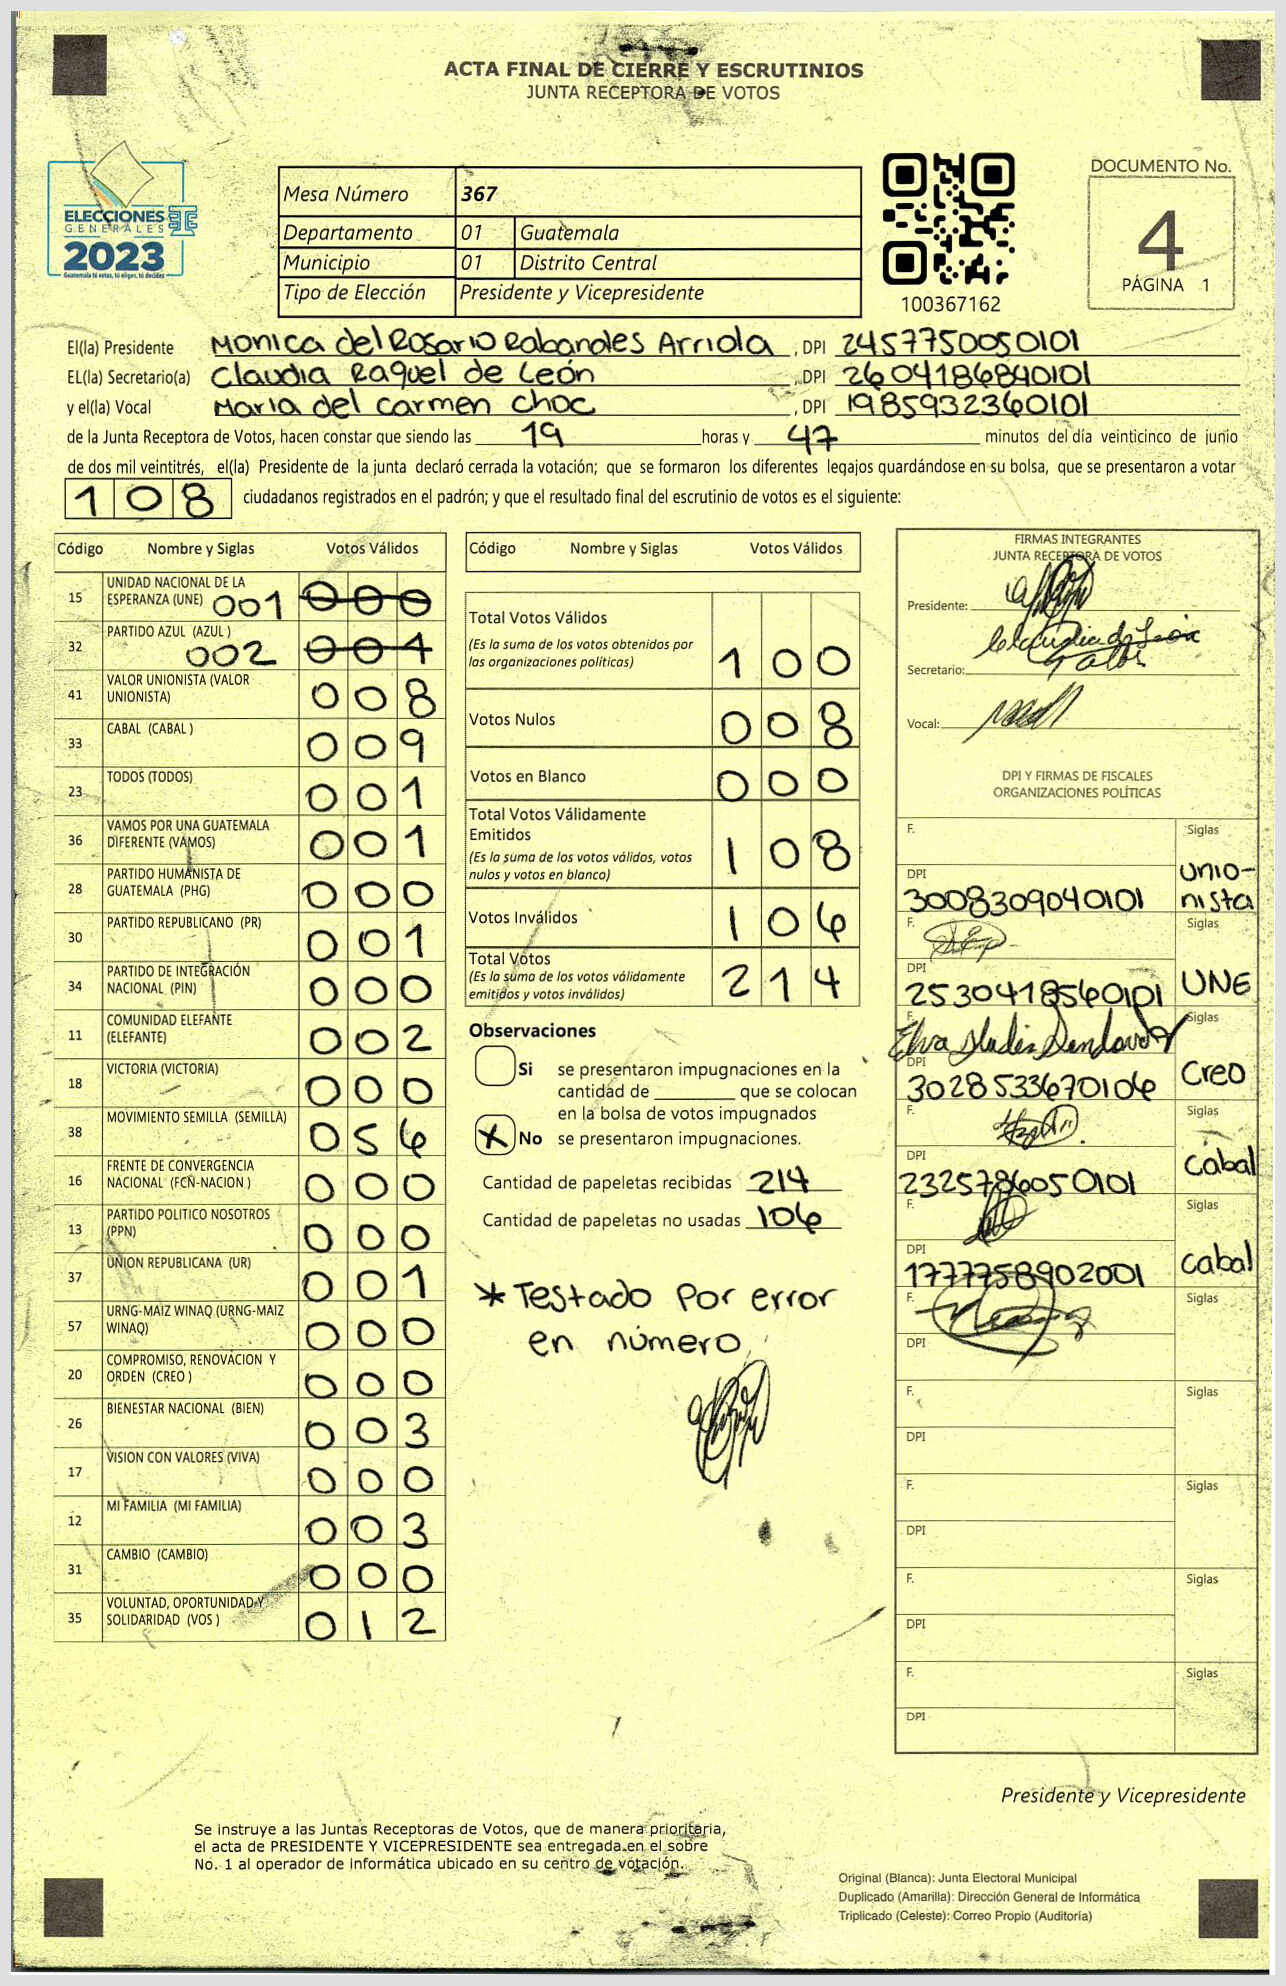 ACTA FINAL DE CIERRE Y ESCRUTINIOS
JUNTA RECEPTORA DE VOTOS
ELECCIONES
GENERALES
2023
Guatemala tú votas, tú eliges, tú decides
Mesa Número 367
Departamento 01 Guatemala
Municipio 01 Distrito Central
Tipo de Elección Presidente y Vicepresidente
100367162
DOCUMENTO No.
4
PÁGINA 1
El(la) Presidente Monica del Rosario Rabanales Arriola , DPI 2457750050101
EL(la) Secretario(a) Claudia Raquel de León , DPI 2604186840101
y el(la) Vocal Maria del Carmen Choc , DPI 1985932360101
de la Junta Receptora de Votos, hacen constar que siendo las 19 horas y 47 minutos del día veinticinco de junio
de dos mil veintitrés, el(la) Presidente de la junta declaró cerrada la votación; que se formaron los diferentes legajos guardándose en su bolsa, que se presentaron a votar
108 ciudadanos registrados en el padrón; y que el resultado final del escrutinio de votos es el siguiente:
Código Nombre y Siglas Votos Válidos
15 UNIDAD NACIONAL DE LA
ESPERANZA (UNE) 001 000
32 PARTIDO AZUL (AZUL )
002 004
41 VALOR UNIONISTA (VALOR
UNIONISTA) 008
33 CABAL (CABAL ) 009
23 TODOS (TODOS) 001
36 VAMOS POR UNA GUATEMALA
DIFERENTE (VAMOS) 001
28 PARTIDO HUMANISTA DE
GUATEMALA (PHG) 000
30 PARTIDO REPUBLICANO (PR) 001
34 PARTIDO DE INTEGRACIÓN
NACIONAL (PIN) 000
11 COMUNIDAD ELEFANTE
(ELEFANTE) 002
18 VICTORIA (VICTORIA) 000
38 MOVIMIENTO SEMILLA (SEMILLA) 056
16 FRENTE DE CONVERGENCIA
NACIONAL (FCN-NACION ) 000
13 PARTIDO POLITICO NOSOTROS
(PPN) 000
37 UNION REPUBLICANA (UR) 001
57 URNG-MAIZ WINAQ (URNG-MAIZ
WINAQ) 000
20 COMPROMISO, RENOVACION Y
ORDEN (CREO ) 000
26 BIENESTAR NACIONAL (BIEN) 003
17 VISION CON VALORES (VIVA) 000
12 MI FAMILIA (MI FAMILIA) 003
31 CAMBIO (CAMBIO) 000
35 VOLUNTAD, OPORTUNIDAD Y
SOLIDARIDAD (VOS ) 012
Código Nombre y Siglas Votos Válidos
Total Votos Válidos
(Es la suma de los votos obtenidos por
las organizaciones políticas) 100
Votos Nulos 008
Votos en Blanco 000
Total Votos Válidamente
Emitidos
(Es la suma de los votos válidos, votos
nulos y votos en blanco) 108
Votos Inválidos 106
Total Votos
(Es la suma de los votos válidamente
emitidos y votos inválidos) 214
Observaciones
Si se presentaron impugnaciones en la
cantidad de que se colocan
en la bolsa de votos impugnados
X No se presentaron impugnaciones.
Cantidad de papeletas recibidas 214
Cantidad de papeletas no usadas 106
* Testado por error
en número
FIRMAS INTEGRANTES
JUNTA RECEPTORA DE VOTOS
Presidente:
Secretario:
Vocal:
DPI Y FIRMAS DE FISCALES
ORGANIZACIONES POLÍTICAS
F. Siglas
DPI 3008309040101 unio-
nista
F. Siglas
DPI 2530418560101 UNE
F. Elva Gladis Sandoval Siglas
DPI 3028533670106 Creo
F. Siglas
DPI 2325786050101 Cabal
F. Siglas
DPI 1777758902001 cabal
F. Siglas
DPI
F. Siglas
DPI
F. Siglas
DPI
F. Siglas
DPI
F. Siglas
DPI
Presidente y Vicepresidente
Se instruye a las Juntas Receptoras de Votos, que de manera prioritaria,
el acta de PRESIDENTE Y VICEPRESIDENTE sea entregada en el sobre
No. 1 al operador de informática ubicado en su centro de votación.
Original (Blanca): Junta Electoral Municipal
Duplicado (Amarilla): Dirección General de Informática
Triplicado (Celeste): Correo Propio (Auditoría)